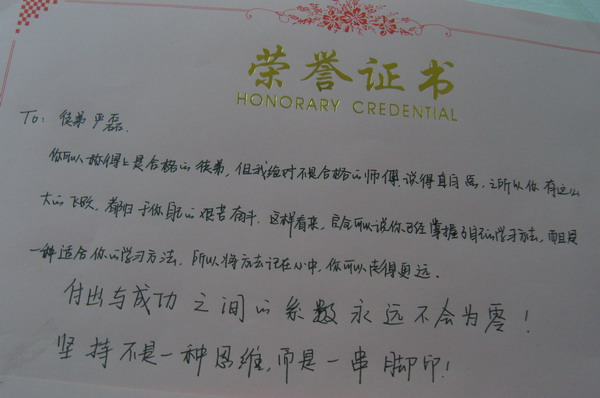 荣誉证书
HONORARY CREDENTIAL
To: 徒弟 严磊.
你可以称得上是合格的徒弟, 但我绝对不是合格的师傅. 说得直白点, 之所以你有这么
大的飞跃, 都归于你自己的艰苦奋斗. 这样看来, 完全可以说你已经掌握了自己的学习方法, 而且是
一种适合你的学习方法. 所以将方法记在心中, 你可以走得更远.
付出与成功之间的系数永远不会为零!
坚持不是一种思维, 而是一串脚印!